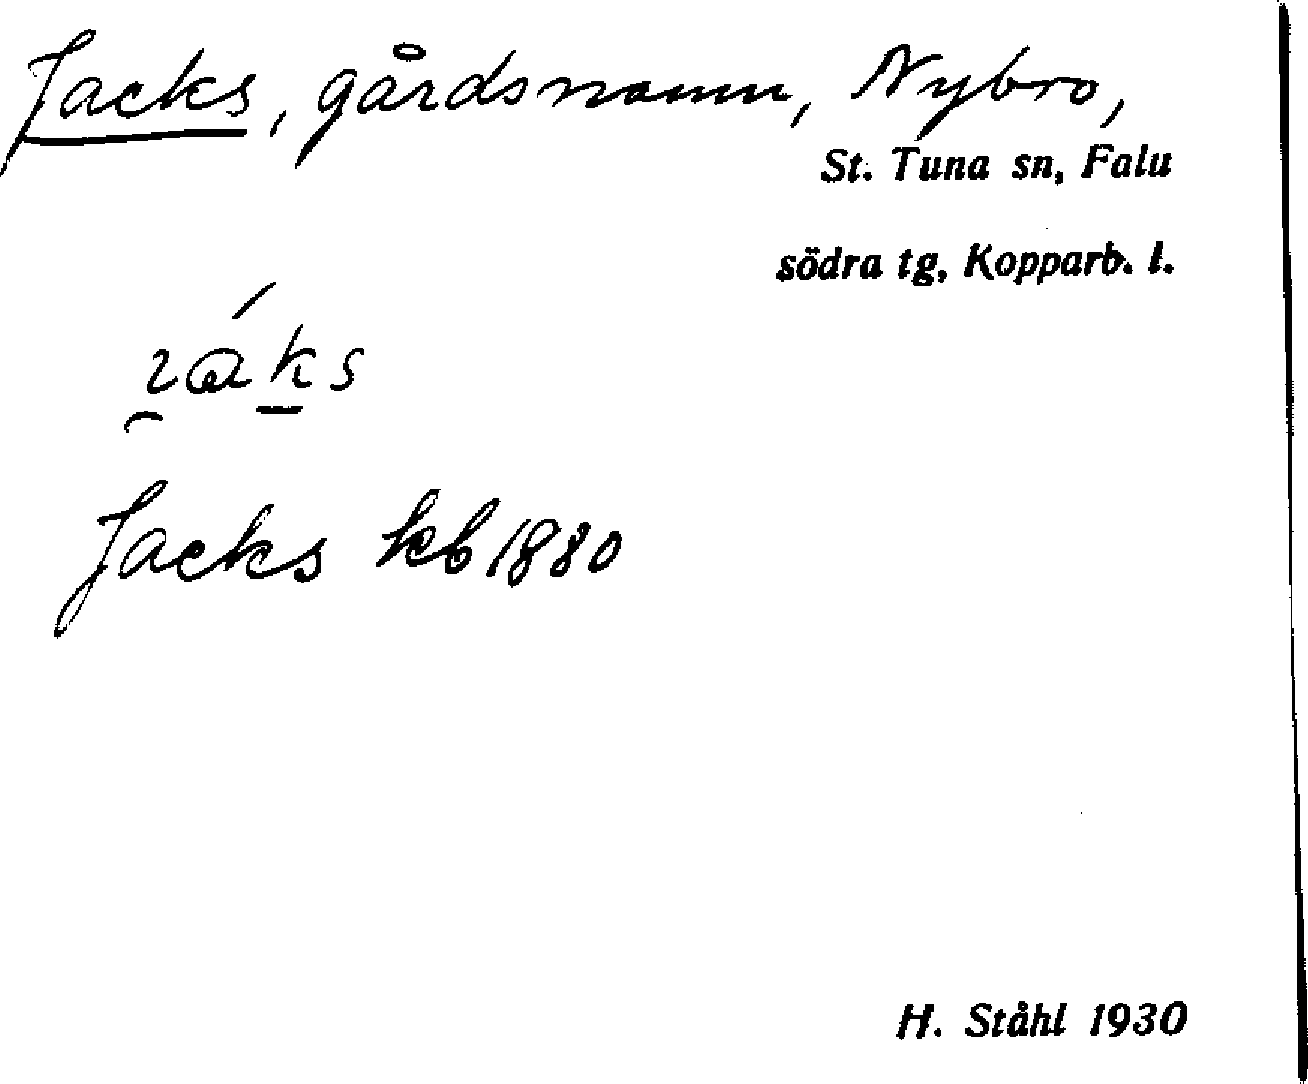 Jacks, gårdsnamn, Nybro,
St. Tuna sn, Falu
södra tg, Kopparb. l.
Jacks kb 1880
H. Ståhl 1930